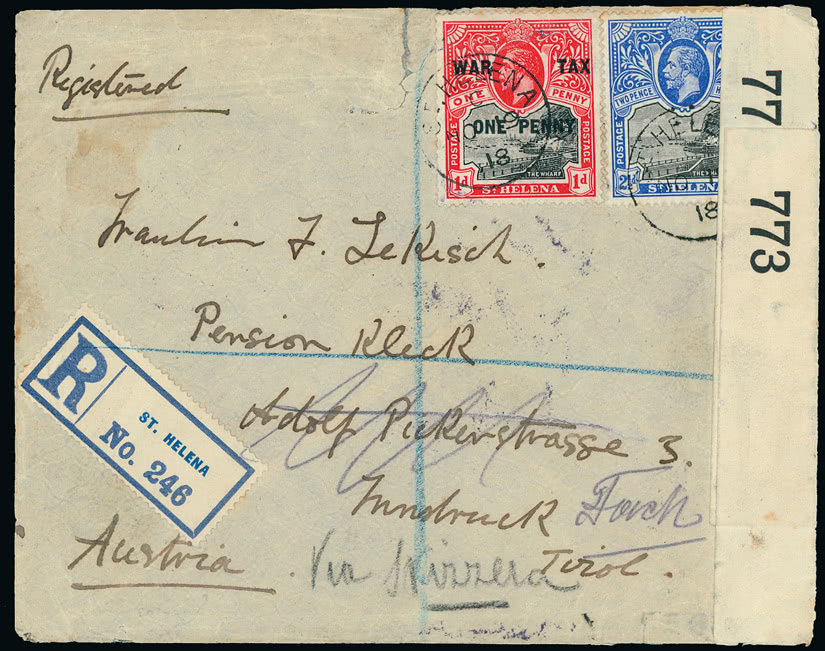 Registered
WAR TAX
ONE PENNY
ONE PENNY
POSTAGE POSTAGE
THE WHARF
1d ST HELENA 1d
TWO PENCE H
POSTAGE
THE WHARF
2½d ST HELENA
ST. HELENA
NO 8
18
ST. HELE
NO
18
773
773
Fraulein F. Lekisch.
Pension Kleck
Adolf Pickerstrasse 3.
Innsbruck
Tirol.
Austria
Via Svizzera
R
ST. HELENA
No. 246